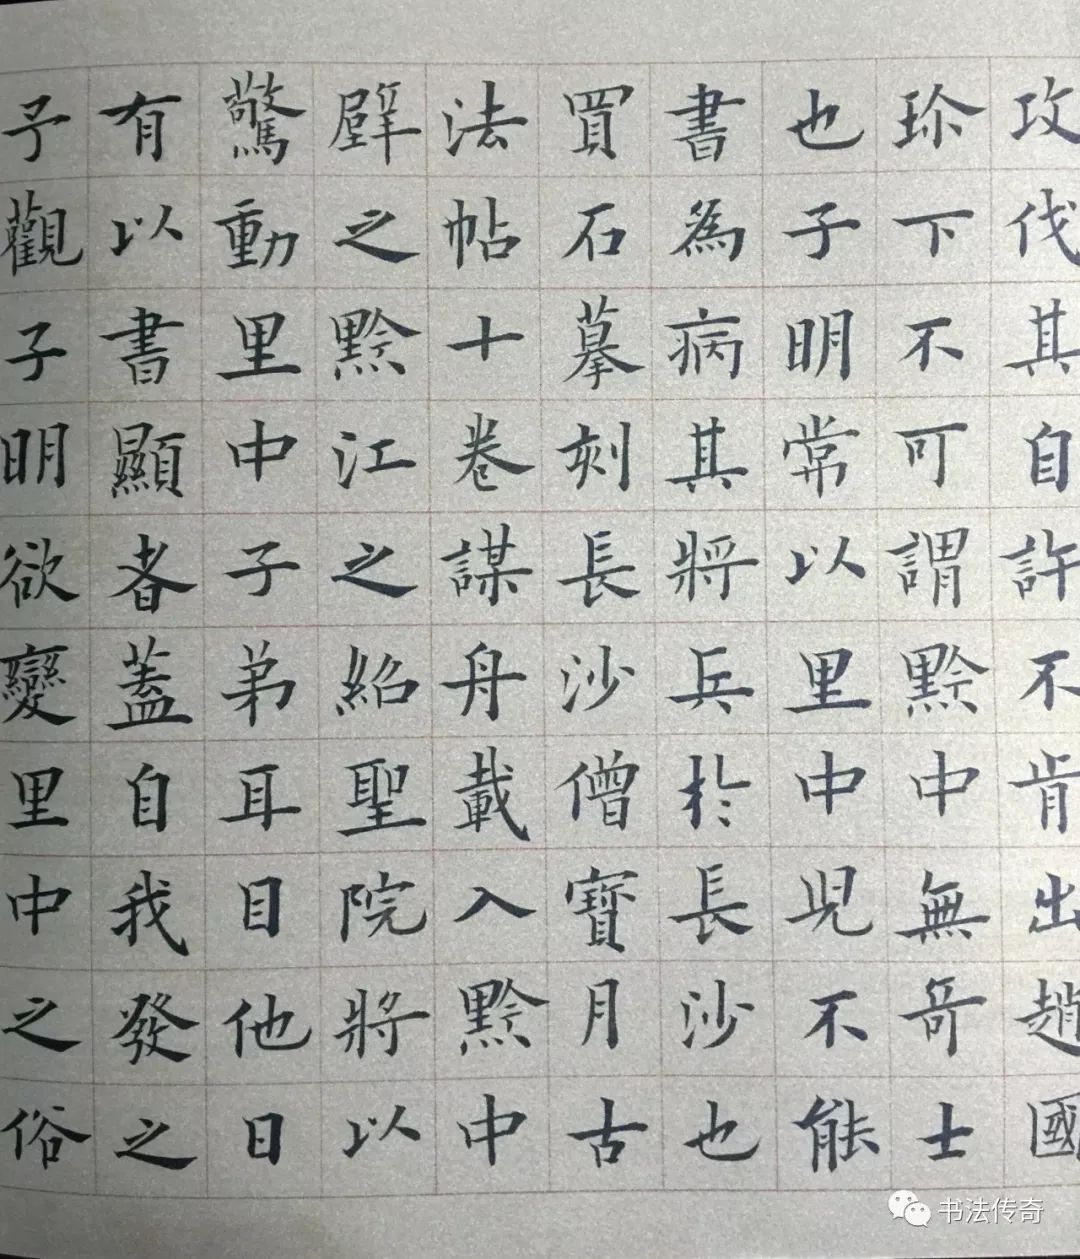 攻伐其自許不肯出趙國
珎下不可謂黔中無奇士
也子明常以里中兒不能
書為病其將兵於長沙也
買石摹刻長沙僧寶月古
法帖十卷謀舟載入黔中
壁之黔江之紹聖院將以
驚動里中子弟耳目他日
有以書顯者蓋自我發之
予觀子明欲變里中之俗
书法传奇